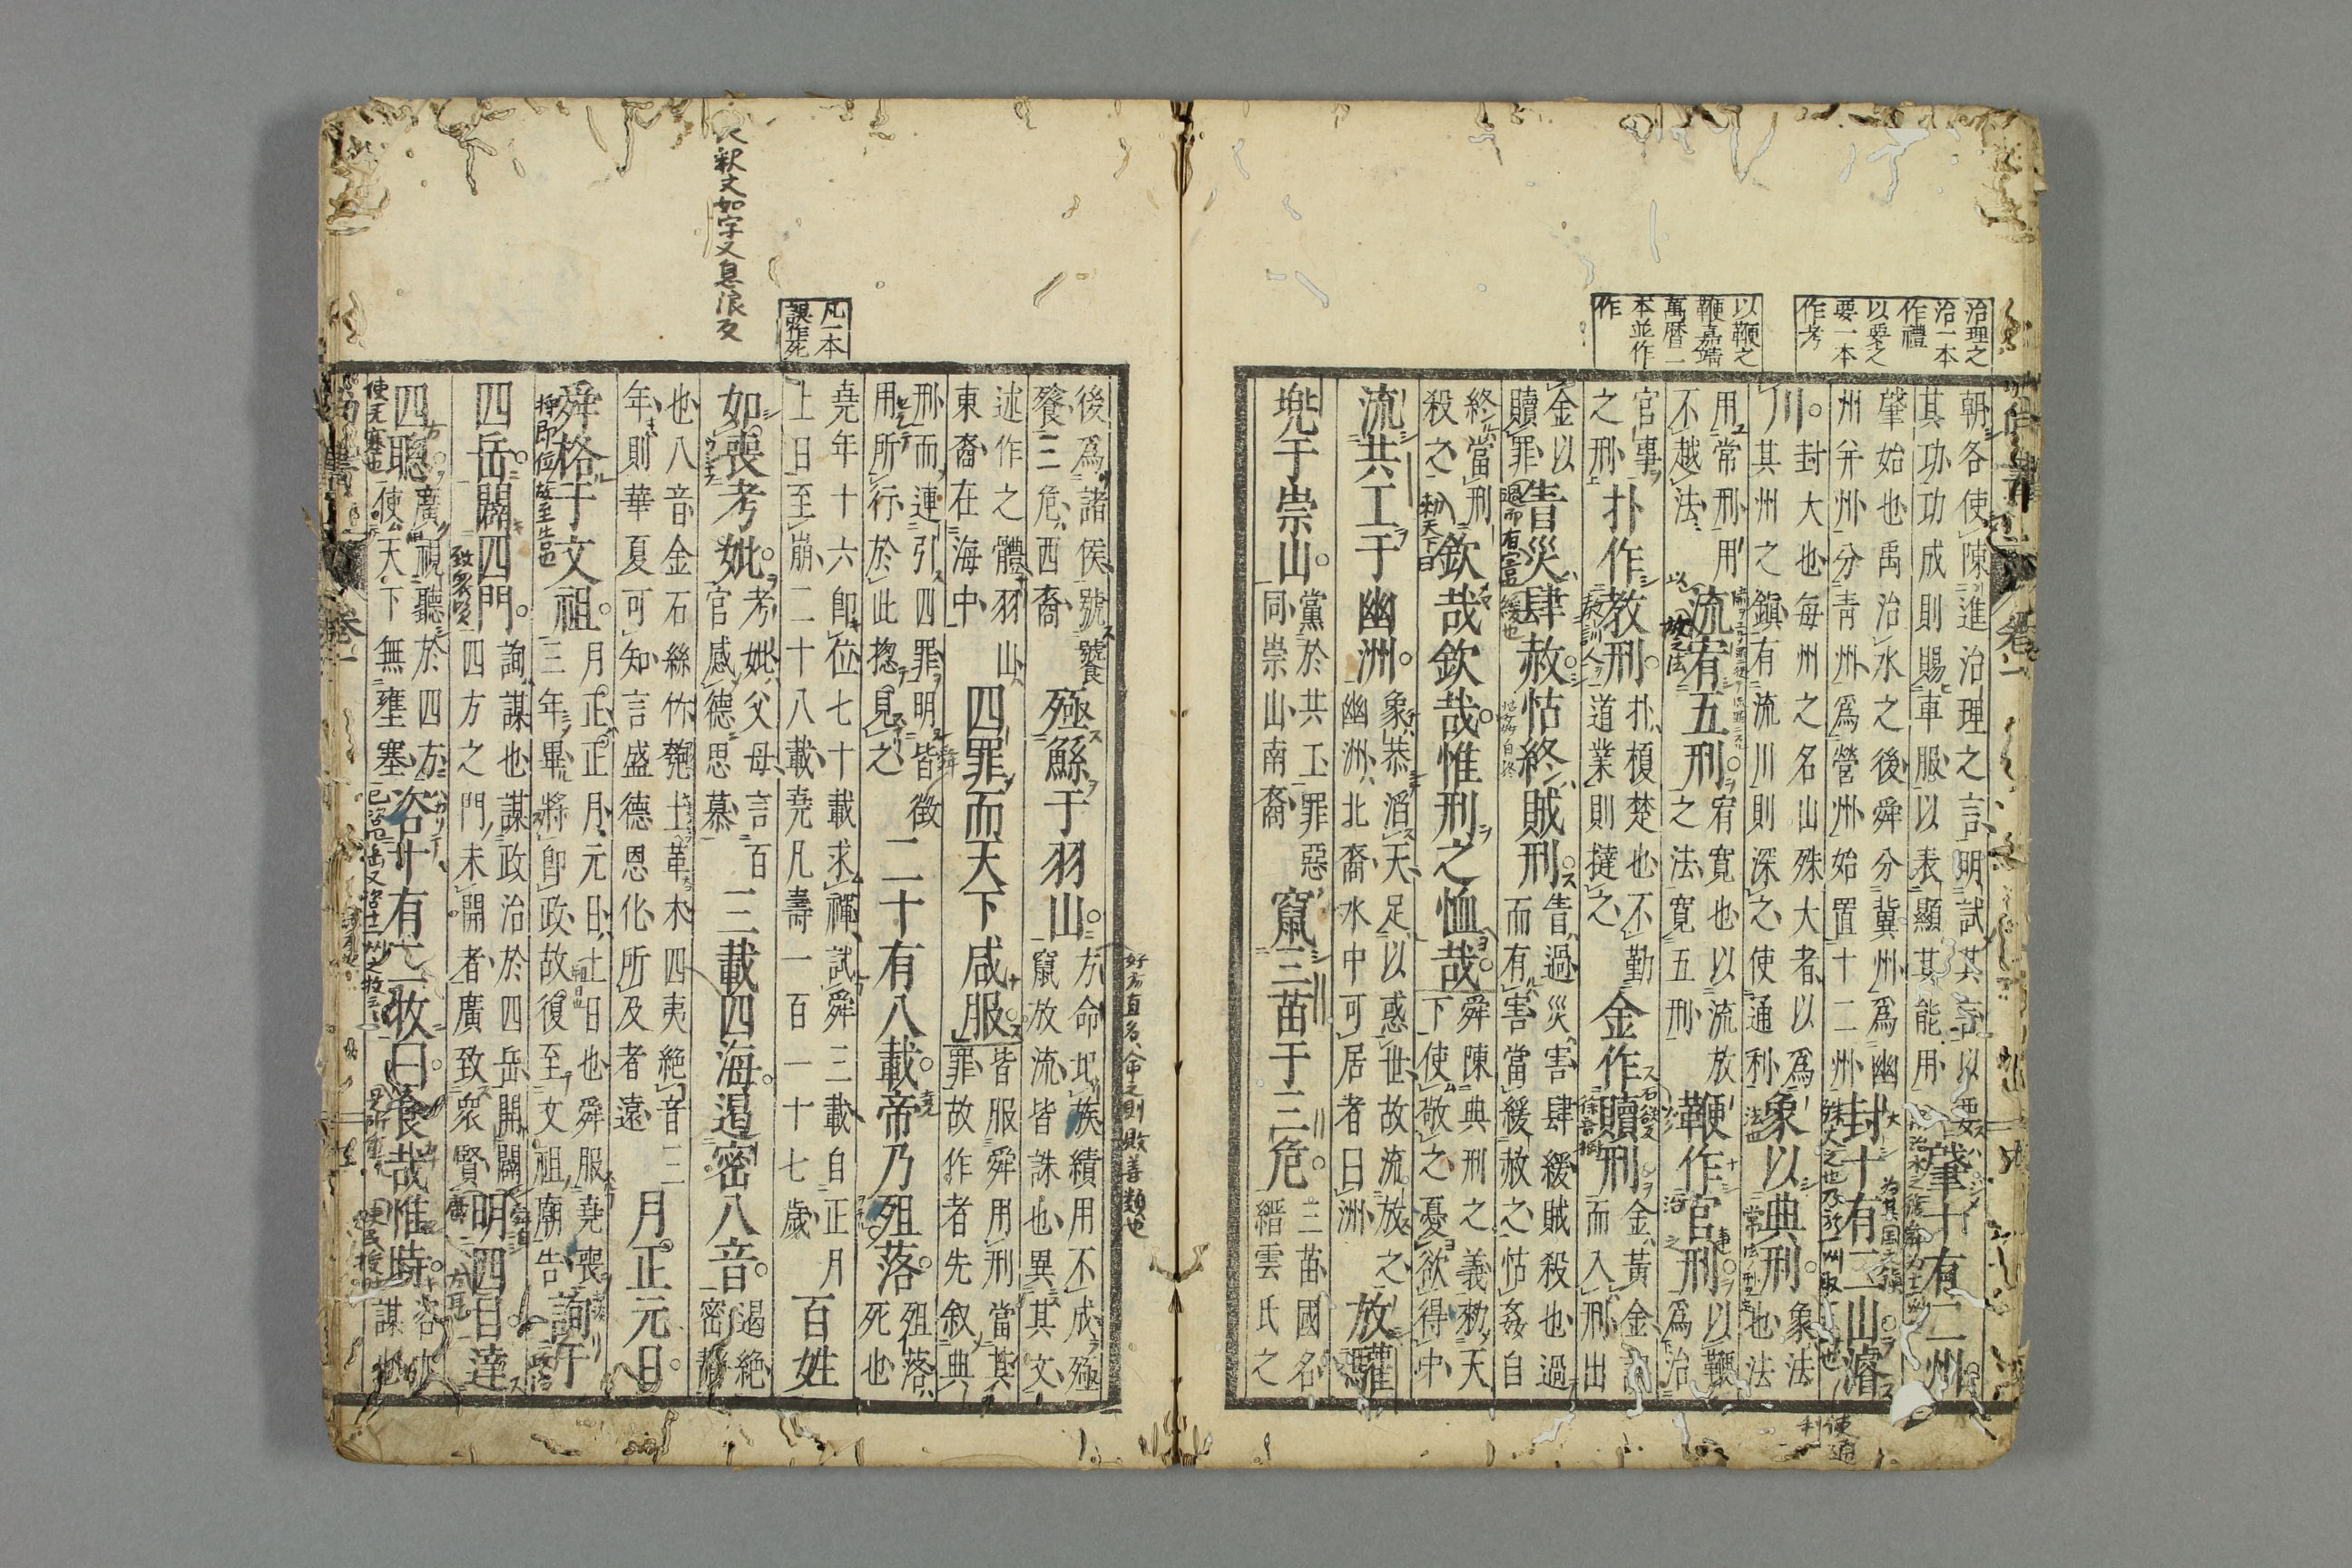 治理之
治一本
作禮
以要之
要一本
作考
以鞭之
鞭嘉靖
萬暦一
本並作
作
朝各使陳進治理之言明試其言以要
其功功成則賜車服以表顯其能用
肇十有二州
肇始也禹治水之後舜分冀州爲幽
州并州分青州爲營州始置十二州
封十有二山濬
川。
封大也每州之名山殊大者以爲
其州之鎭有流川則深之使通利
象以典刑。
象法
也法
用常刑用
不越法
流宥五刑。
宥寛也以流放
之法寛五刑
鞭作官刑。
以鞭
爲治
官事
之刑
扑作教刑。
扑榎楚也不勤
道業則撻之
金作贖刑
金黃金誤
而入刑出
金以
贖罪
眚災肆赦。怙終賊刑。
眚過災害肆緩賊殺也過
而有害當緩赦之怙姦自
終當刑
殺之
欽哉欽哉。惟刑之恤哉。
舜陳典刑之義勑天
下使敬之憂欲得中
流共工于幽洲。
象恭滔天足以惑世故流放之
幽洲北裔水中可居者曰洲
放驩
兜于崇山。
黨於共工罪惡
同崇山南裔
竄三苗于三危。
三苗國名
縉雲氏之
釈文如字又息浪反
凡一本
誤作死
後爲諸侯號饕
餮三危西裔
殛鯀于羽山。
方命圮族績用不成殛
竄放流皆誅也異其文
述作之體羽山
東裔在海中
四罪而天下咸服。
皆服舜用刑當其
罪故作者先叙典
刑而連引四罪明皆徵
用所行於此揔見之
二十有八載。帝乃殂落。
殂落
死也
堯年十六卽位七十載求禪試舜三載自正月
上日至崩二十八載堯凡壽一百一十七歲
百姓
如喪考妣。
考妣父母言百
官感德思慕
三載四海。遏密八音。
遏絶
密靜
也八音金石絲竹匏土革木四夷絶音三
年則華夏可知言盛德恩化所及者遠
月正元日。
舜格于文祖。
月正正月元日上日也舜服堯喪
三年畢將卽政故復至文祖廟告
詢于
四岳。闢四門。
詢謀也謀政治於四岳開闢
四方之門未開者廣致衆賢
明四目。達
四聰。
廣視聽於四方
使天下無壅塞
咨十有二牧曰。食哉惟時。
咨亦
謀也